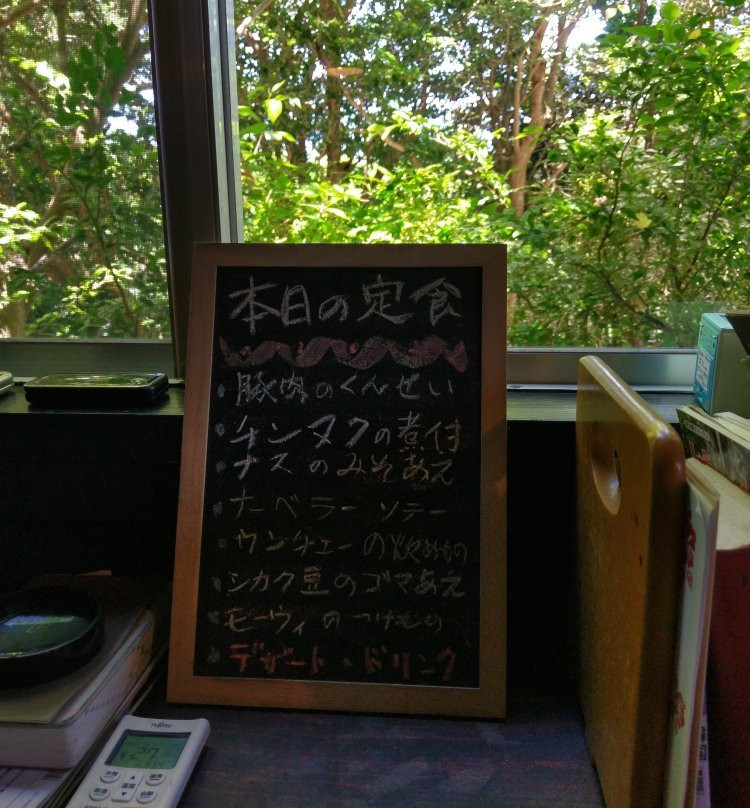 本日の定食
・豚肉のくんせい
・チンヌクの煮付
・ナスのみそあえ
・ナーベラーソテー
・ウンチェーの炒めもの
・シカク豆のゴマあえ
・モーウィのつけもの
・デザート・ドリンク
FUJITSU
27